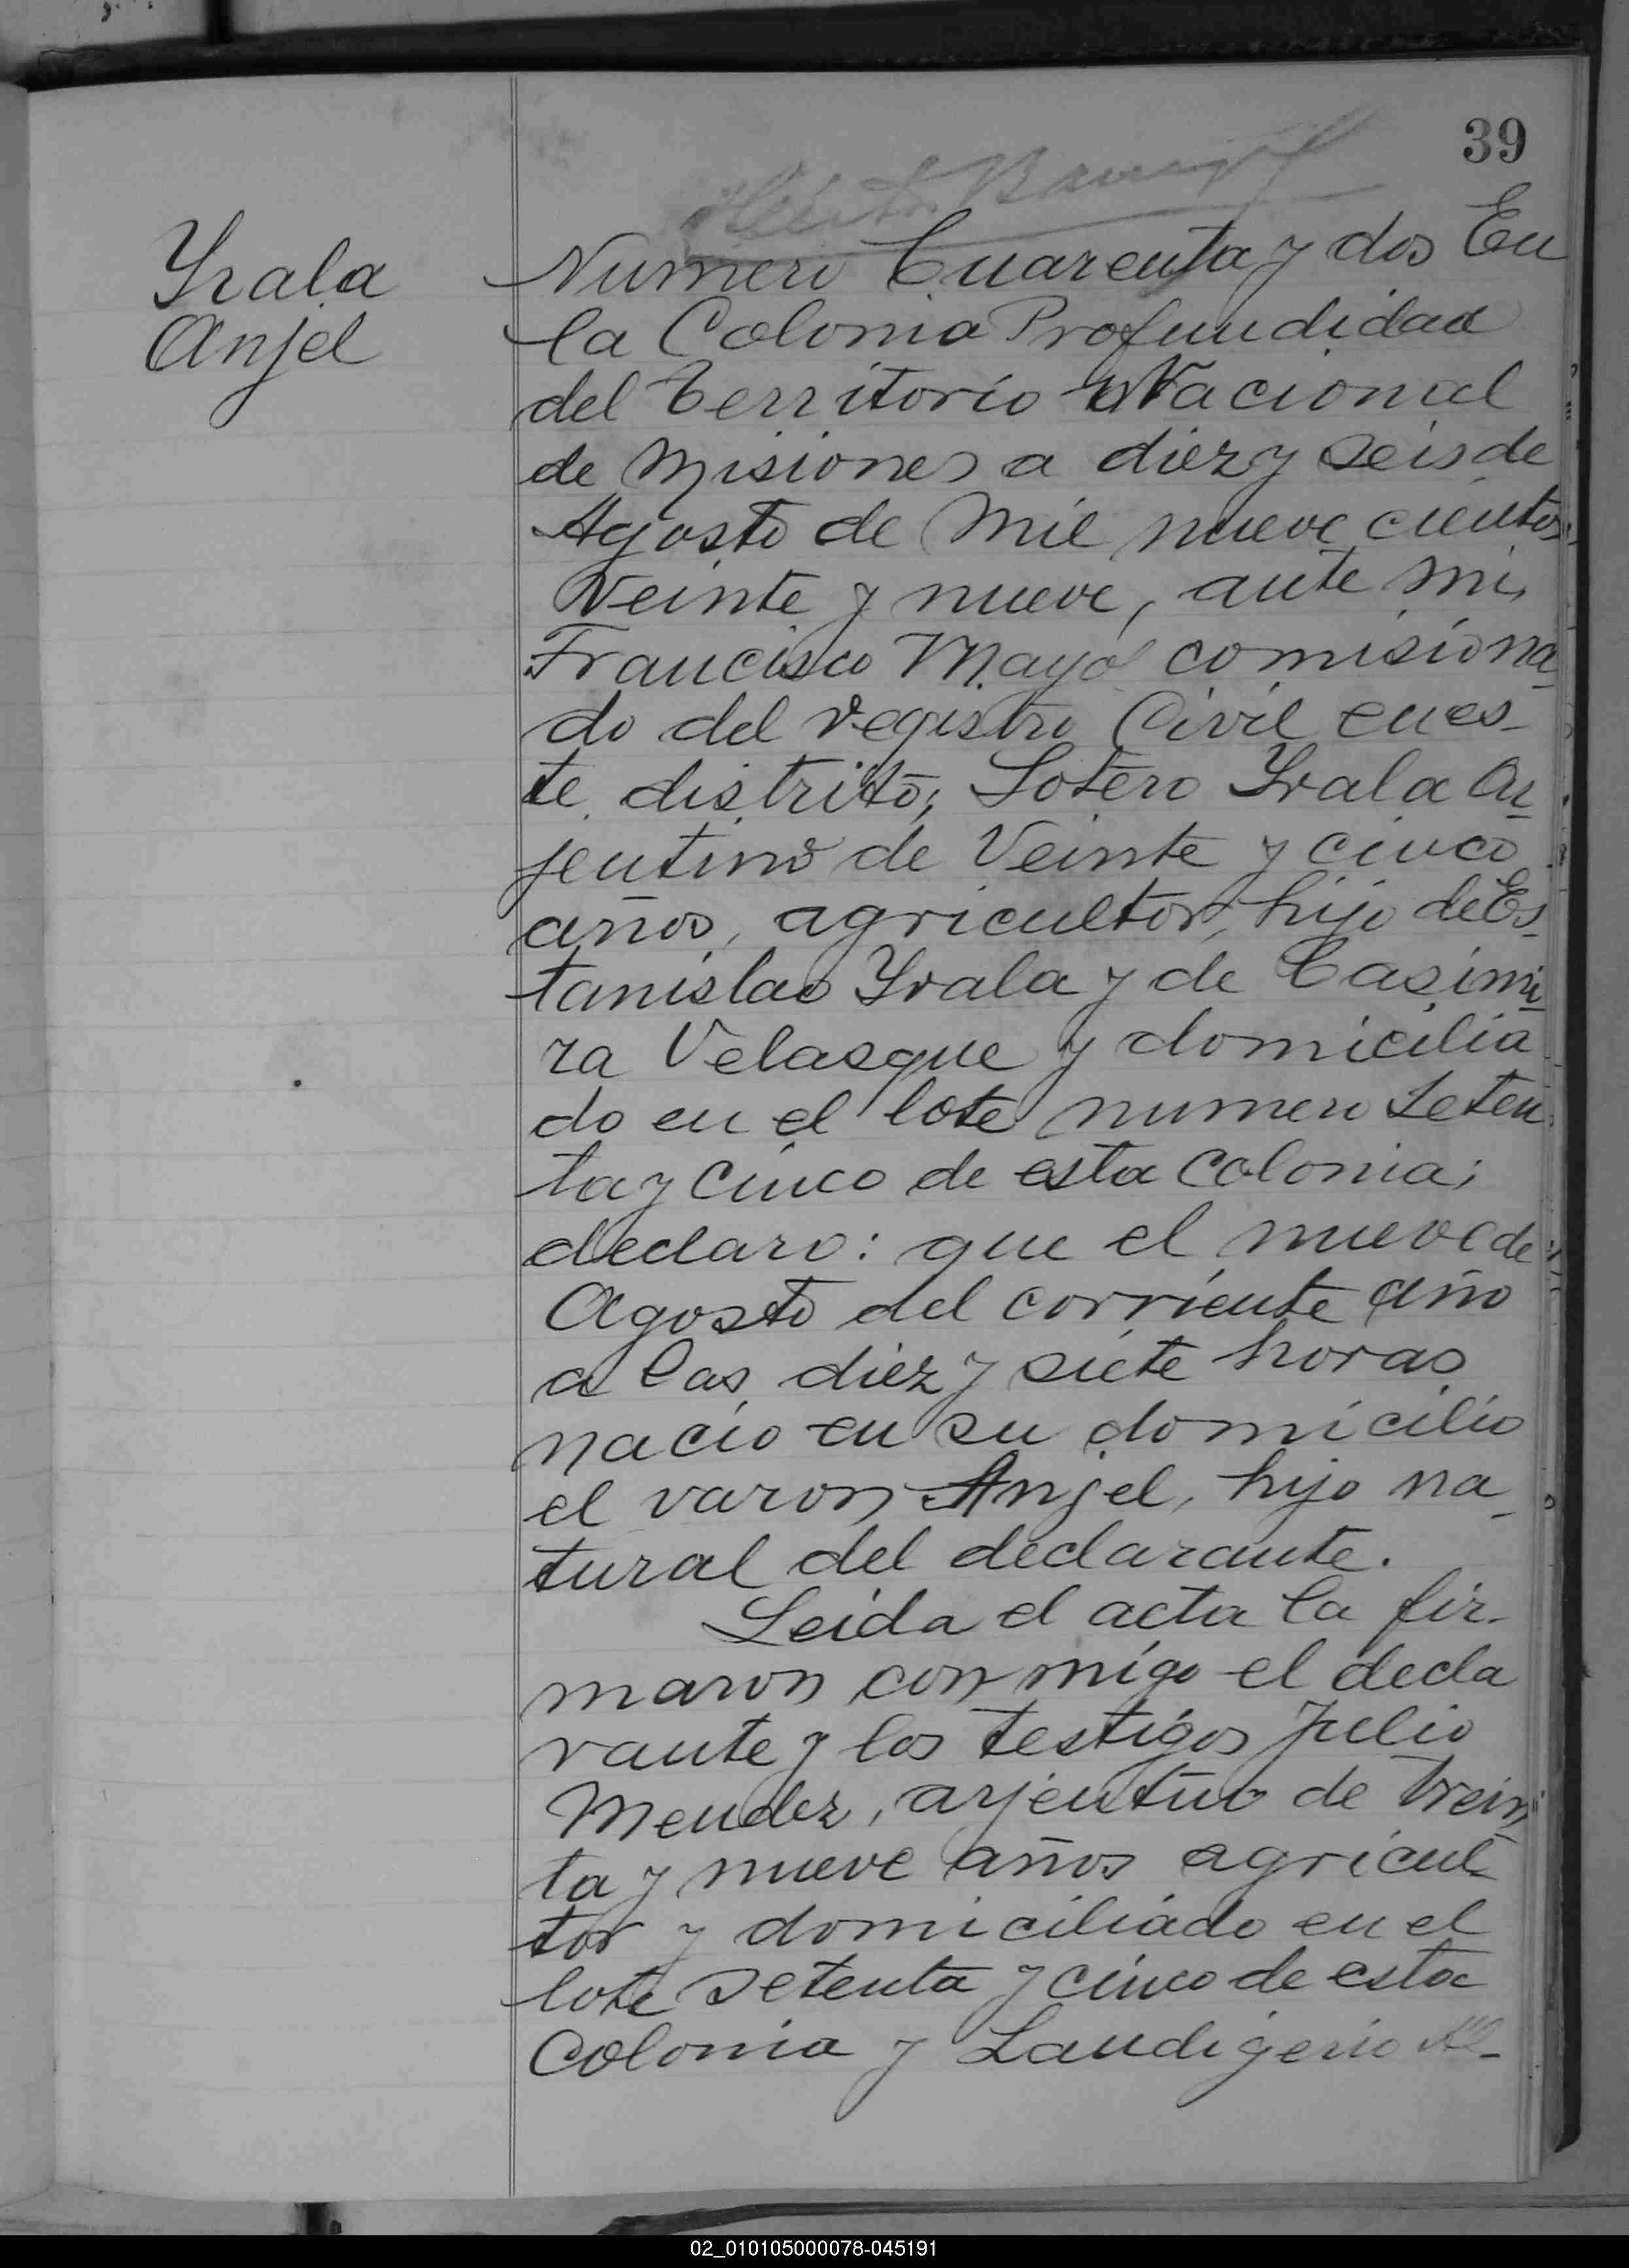 39
Yrala
Anjel
Numero Cuarenta y dos En
la Colonia Profundidad
del Territorio Nacional
de Misiones a diez y seis de
Agosto de Mil nueve cientos
Veinte y nueve, ante mi,
Francisco Mayol comisiona_
do del registro Civil en es_
te distrito; Sotero Yrala Ar_
jentino de Veinte y cinco
años, agricultor, hijo de Es_
tanislao Yrala y de Casimi_
ra Velasque y domicilia
do en el lote numero Seten
ta y cinco de esta colonia;
declaro: que el nueve de
Agosto del corriente año
a las diez y siete horas
nacio en su domicilio
el varon Anjel, hijo na_
tural del declarante.
Leida el acta la fir_
maron conmigo el decla
rante y los testigos Julio
Mendez, arjentino de trein
ta y nueve años agricul_
tor y domiciliado en el
lote setenta y cinco de esta
Colonia y Laudigerio Al_
02_010105000078-045191